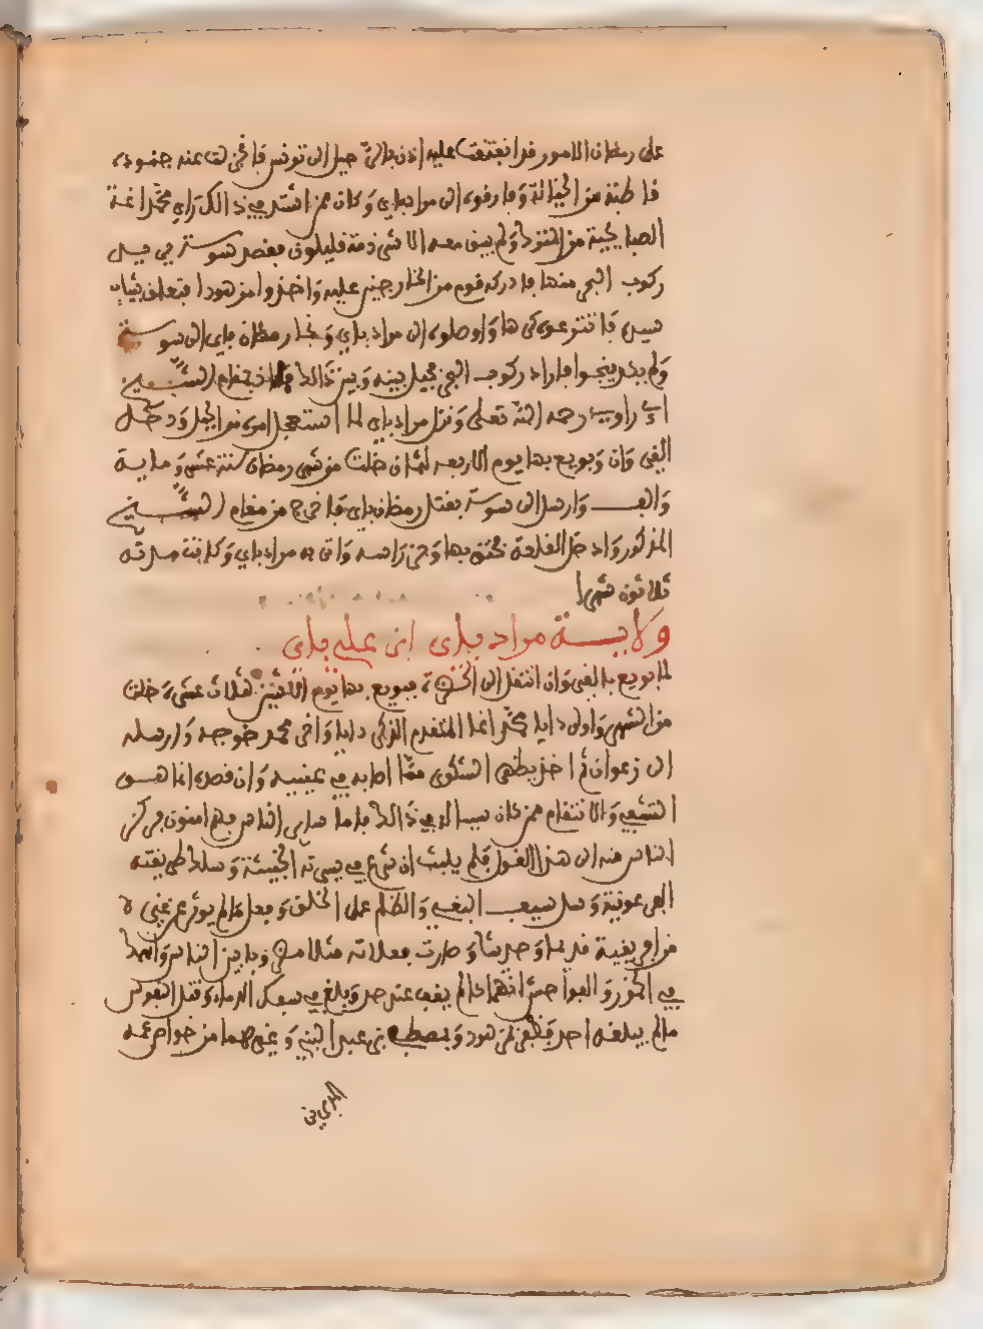 على رمضان الامور قد انفتقت عليه اذن بالرحيل الى تونس فانخزلت عنه جنوده
قاطبة من الخيالة وفارقوه الى مراد باي وكان ممن اشتد في ذالك راي محمد اغة
الصبايحية من الترك ولم يبق معه الا شرذمة قليلون فقصد سوسة
ركوب البحر منها فادركه قوم من الخارجين عليه واخذوا مزهودا فتعلق بثياب
سيده فانتزعوه كرها واوصلوه الى مراد باي ونجا رمضان باي الى سوسة
ولم يكد ينجوا فاراد ركوب البحر فحيل بينه وبين ذالك بمقام الشيخ سيدي
ابي راوي رحمه الله تعلى ونزل مراد باي لما استعجل امره من الجبل ودخل
القيروان وبويع بها يوم الاربعه لثمان خلت من شهر رمضان سنة عشر وماية
والف وارسل الى سوسة بقتل رمضان باي فاخرج من مقام الشيخ سيدي
المذكور وادخل القلعة فخنق بها وحز راسه واتي به مراد باي وكانت مدته
ثلاثون شهرا
ولاية مراد باي ابن علي باي
لما بويع بالقيروان انتقل الى الحضرة فبويع بها يوم الاثنين لثلاث عشرة خلت
من الشهر واولى دايا محمد اغا المتقدم الذكر دايا واخر محمد خوجه وارسله
الى زغوان ثم اخذ يظهر الشكوى مما اصابه في عينيه وان قصده انما هو
التشفي والانتقام ممن كان سببا له في ذالك فاما ساير الناس فهم امنون فركن
الناس منه الى هذا القول فلم يلبث ان شرع في سيرته الخبيثة وسلك طريقته
الفرعونية وسل سيف البغي والظلم على الخلق وفعل مالم يوثر عن غيره
من افريقية قديما وحديثا وصارت فعلاته مثلا فيما بين الناس
في الجور والعوا حتى انتهى لما لم يقف عند حد وبلغ في سفك الدماء وقتل النفوس
مالم يبلغه احد فقتل مزهود ومصطفى بن عبد النبي وغيرهما من خواص عمه